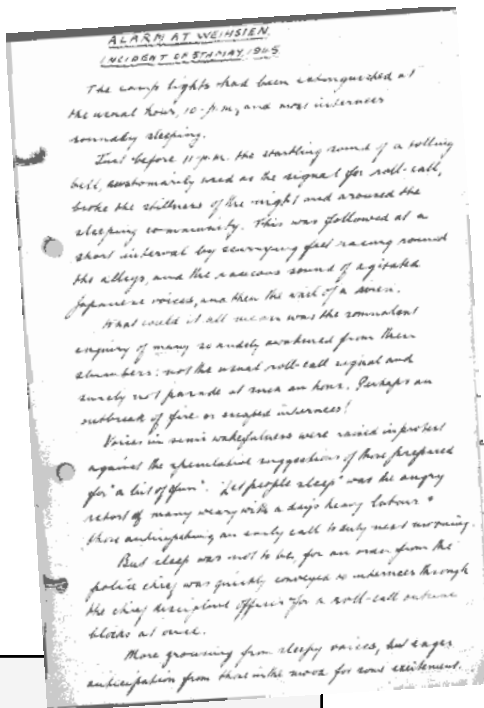 ALARM AT WEIHSIEN
INCIDENT OF 5TH MAY, 1945
The camp lights had been extinguished at
the usual hour, 10-p.m, and most internees
soundly sleeping.
Just before 11-p.m. the startling sound of a tolling
bell, customarily used as the signal for roll-call,
broke the stillness of the night and aroused the
sleeping community. This was followed at a
short interval by scurrying feet racing round
the alleys, and the raucous sound of agitated
Japanese voices, and then the wail of a siren.
What could it all mean was the somnolent
enquiry of many so rudely awakened from their
slumbers: not the usual roll-call signal and
surely not parade at such an hour. Perhaps an
outbreak of fire or escaped internees!
Voices in semi wakefulness were raised in protest
against the speculative suggestions of those prepared
for "a bit of fun". "Let people sleep" was the angry
retort of many weary with a days heavy labour &
those anticipating an early call to duty next morning.
But sleep was not to be, for an order from the
police chief was quickly conveyed to internees through
the chief discipline officer for a roll-call outside
blocks at once.
More grousing from sleepy voices, but eager
anticipation from those in the mood for some excitement.